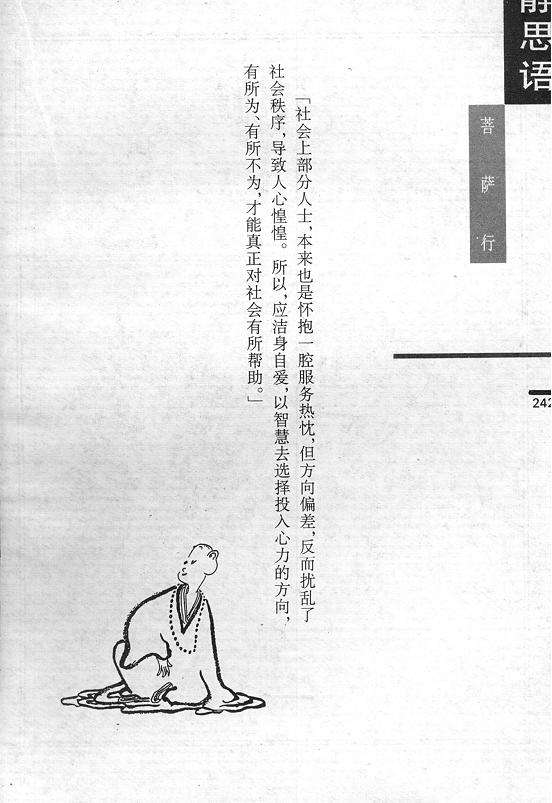 静思语
菩萨行
「社会上部分人士，本来也是怀抱一腔服务热忱，但方向偏差，反而扰乱了
社会秩序，导致人心惶惶。所以，应洁身自爱，以智慧去选择投入心力的方向，
有所为、有所不为，才能真正对社会有所帮助。」
242